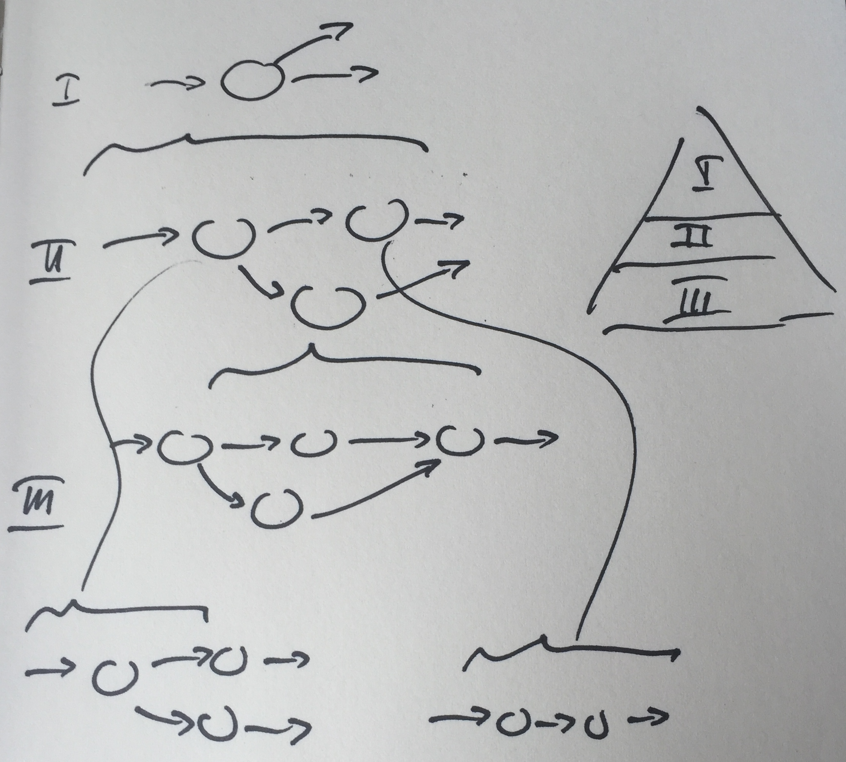 I
II
III
I
II
III